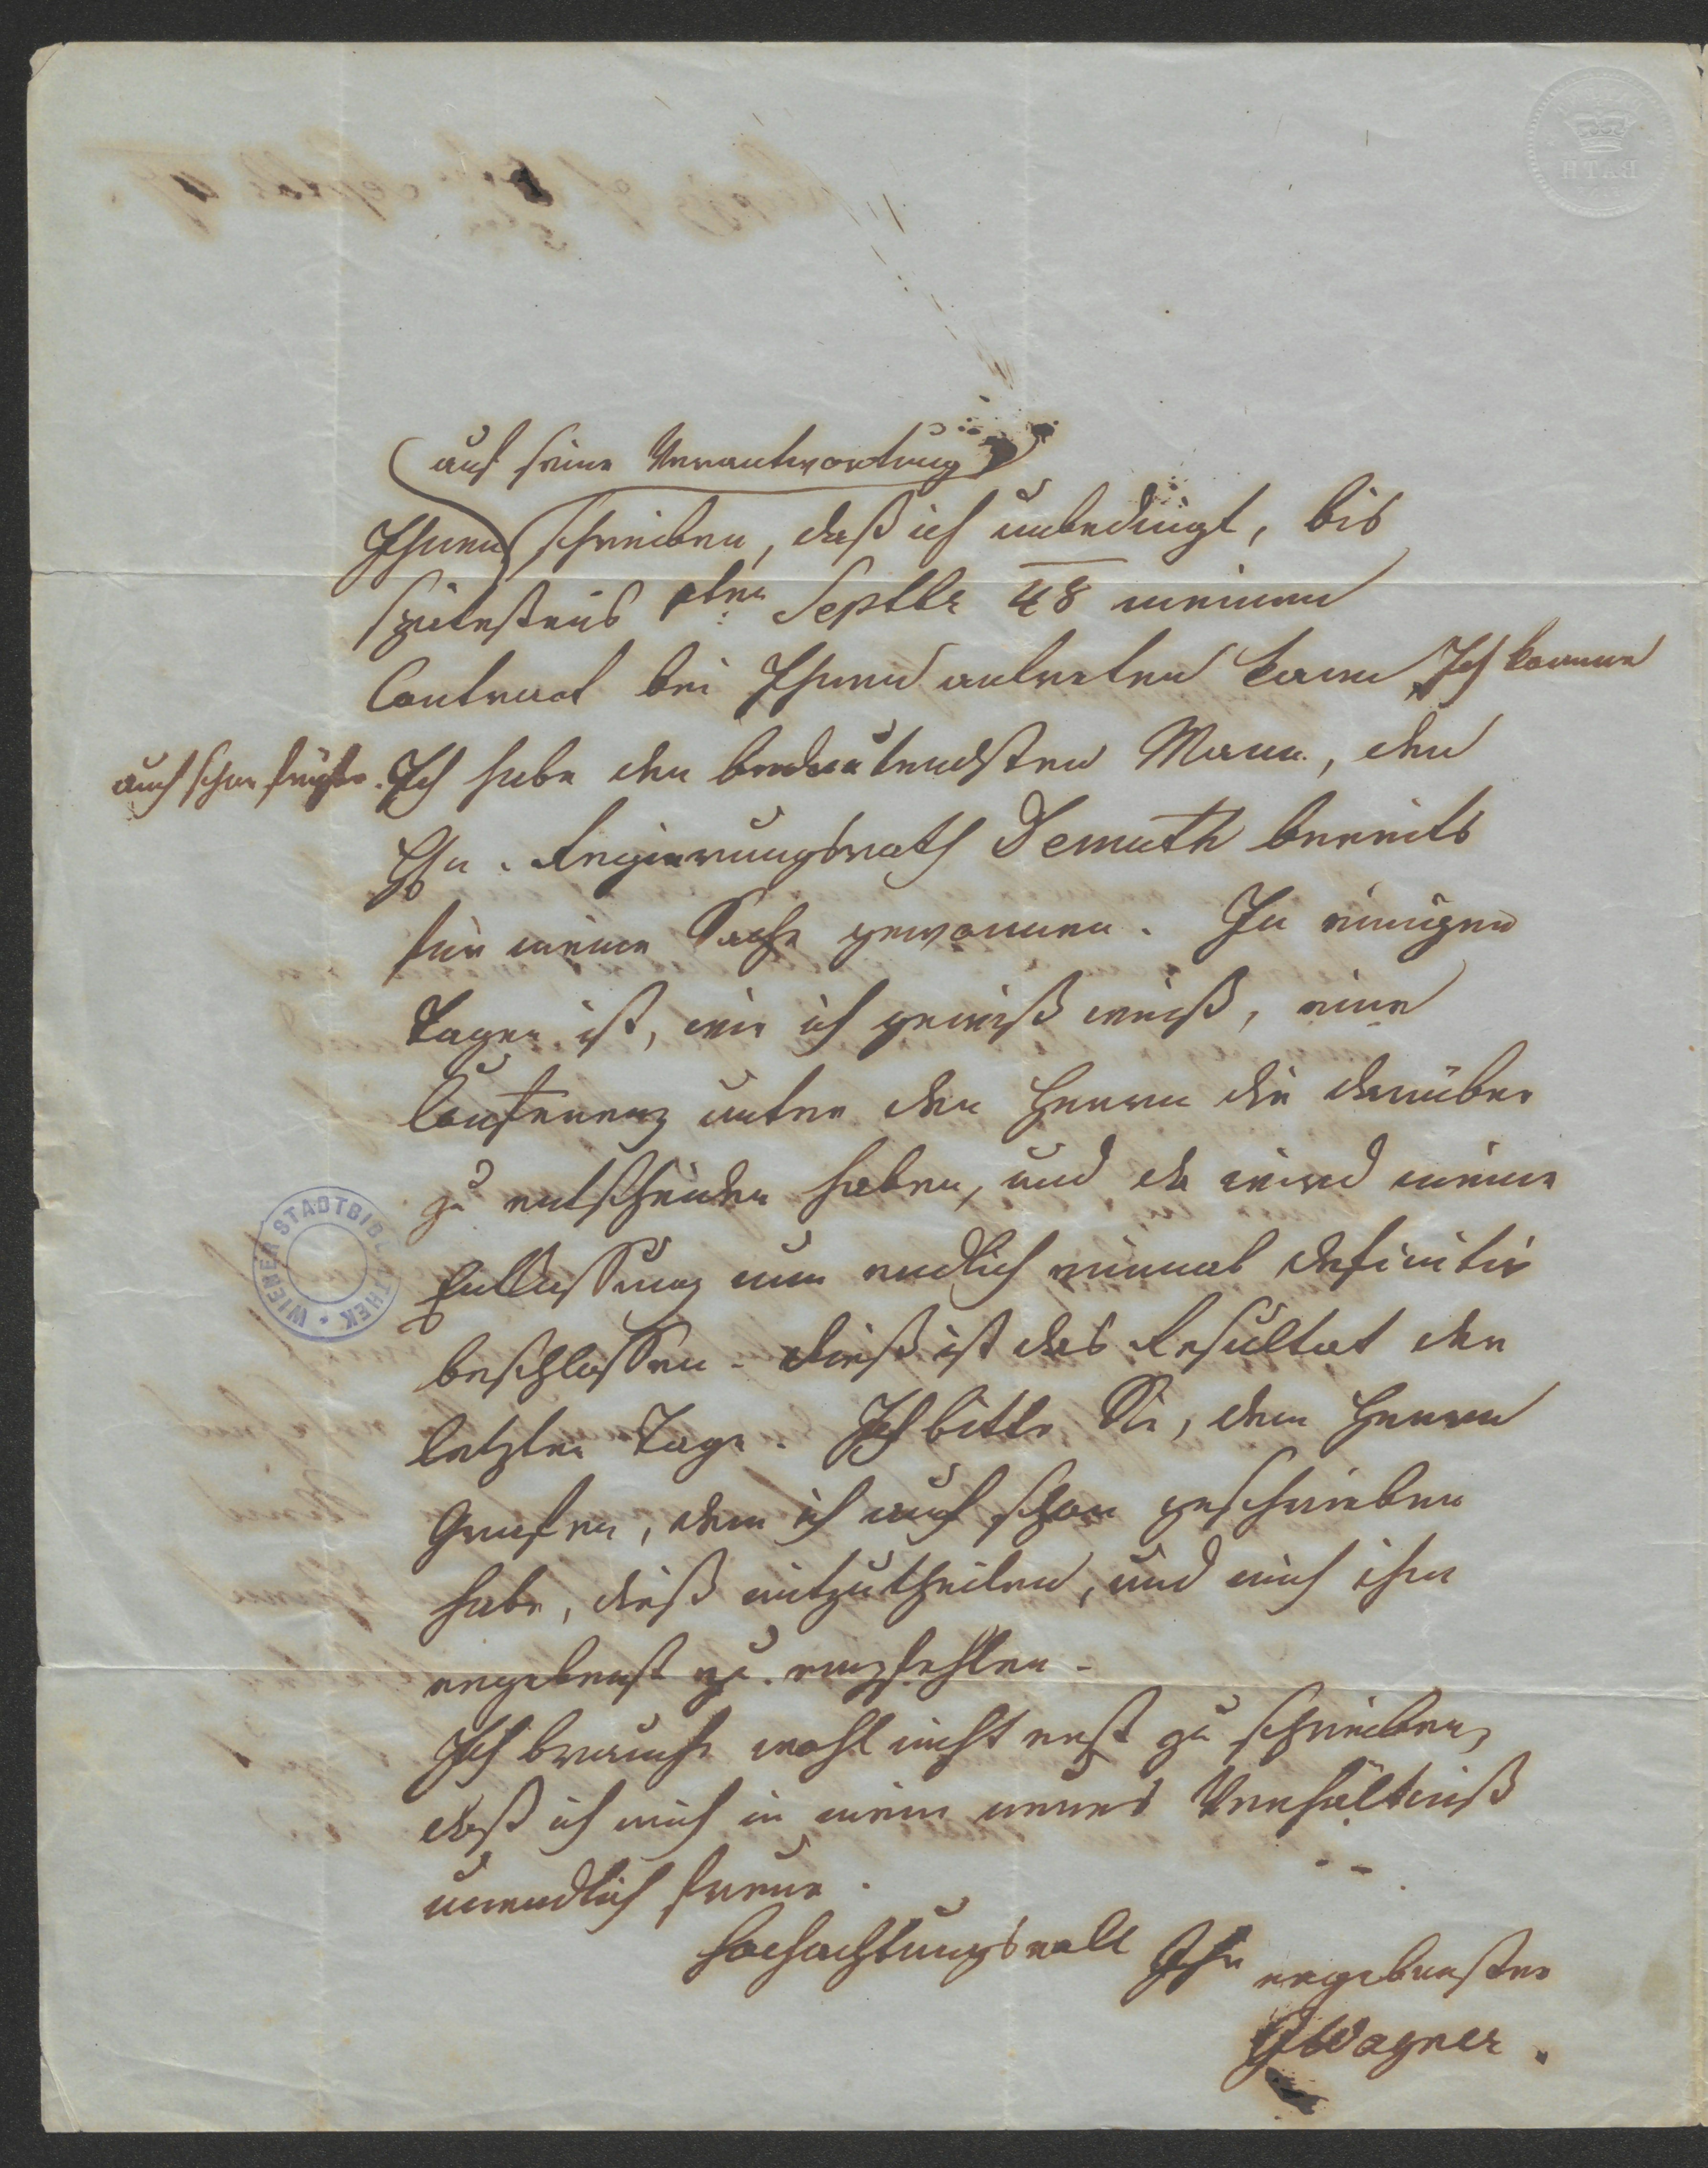 auf seine Verantwortung
Ihnen schreiben, daß ich unbedingt, bis
spätestens 1ten Septbr 48 meinen
Contract bei Ihnen antreten kann Ich komme
auch schon früher. Ich habe den bedeutendsten Mann, den
Hrn. Regierungsrath Demuth bereits
für meine Sache gewonnen. In einigen
Tagen ist, wie ich gewiß weiß, eine
Conferenz unter den Herren die darüber
zu entscheiden haben, und da wird meine
Entlassung nun endlich einmal definitiv
beschlossen. Dieß ist das Resultat der
letzten Tage. Ich bitte Sie, dem Herrn
Grafen, dem ich auch schon geschrieben
habe, dieß mitzutheilen, und mich ihm
ergebenst zu empfehlen.
Ich brauche wohl nicht erst zu schreiben,
daß ich mich in mein neues Verhältniß
unendlich freue.
Hochachtungsvoll Ihr ergebenster
JWagner.
WIENER STADTBIBLIOTHEK
BATH